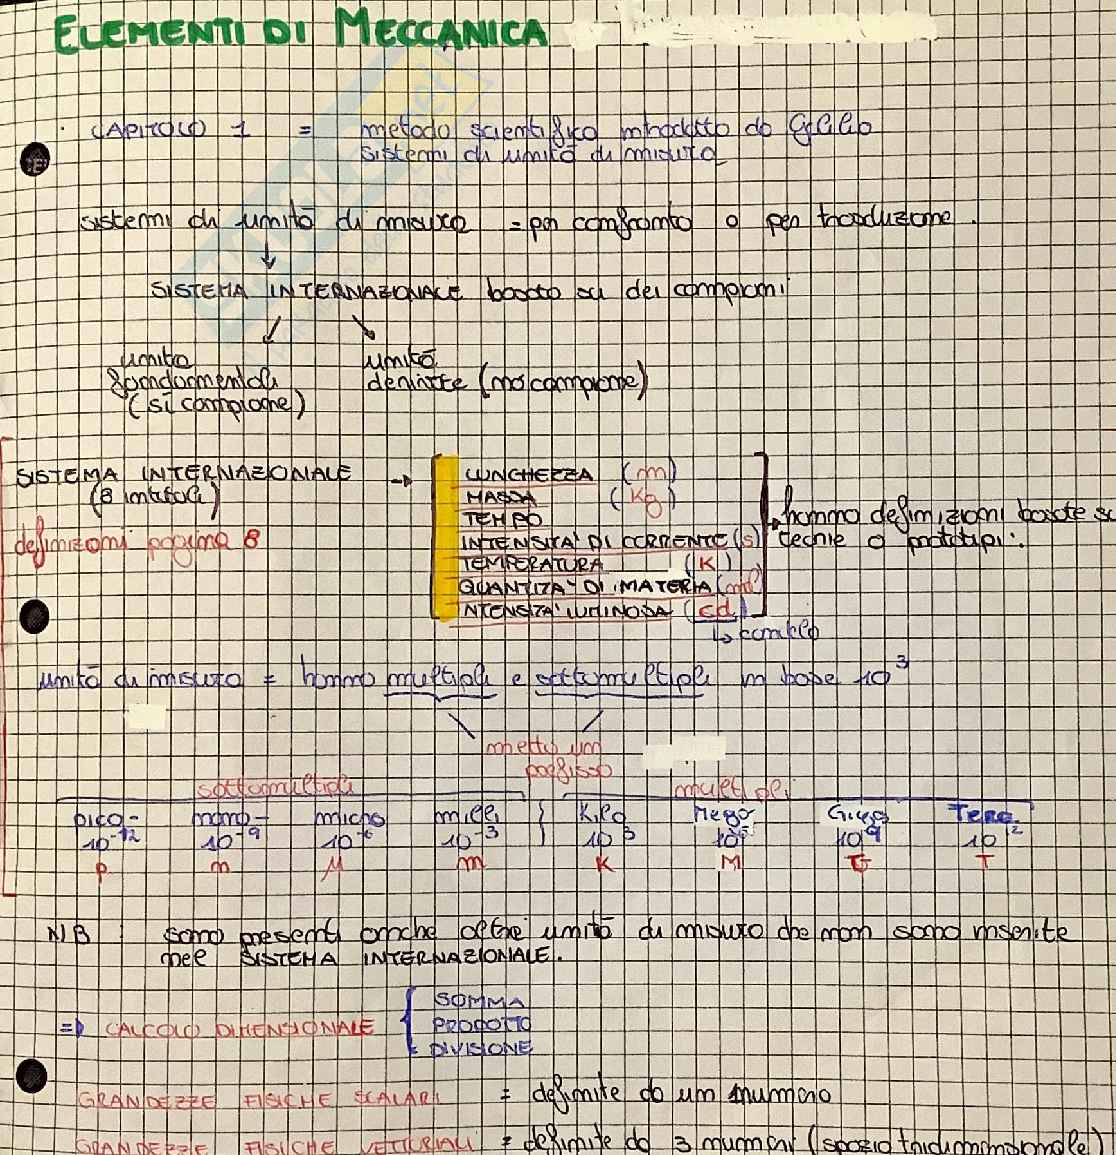 ELEMENTI DI MECCANICA
CAPITOLO 1 = metodo scientifico introdotto da Galileo
sistemi di unità di misura
sistemi di unità di misura = per confronto o per traduzione.
SISTEMA INTERNAZIONALE basato su dei campioni
unità unità
fondamentali derivate (no campione)
(sì campione)
SISTEMA INTERNAZIONALE → LUNGHEZZA (m)
MASSA (Kg)
TEMPO
INTENSITA' DI CORRENTE (s)
TEMPERATURA (K)
QUANTITA' DI MATERIA (mol)
INTENSITA' LUMINOSA (cd)
↳ candela
definizioni pagina 8
↳ hanno definizioni basate su
tecnie o prototipi.
unità di misura = hanno multipli e sottomultipli in base 10³
metto un
prefisso
sottomultipli multipli
pico- nano- micro milli Kilo Mega Giga Tera
10⁻¹² 10⁻⁹ 10⁻⁶ 10⁻³ 10³ 10⁶ 10⁹ 10¹²
p n μ m K M G T
NB sono presenti anche altre unità di misura che non sono inserite
nel SISTEMA INTERNAZIONALE.
⇒ CALCOLO DIMENSIONALE { SOMMA
PRODOTTO
DIVISIONE
GRANDEZZE FISICHE SCALARI = definite da un numero
GRANDEZZE FISICHE VETTORIALI = definite da 3 numeri (spazio tridimensionale)